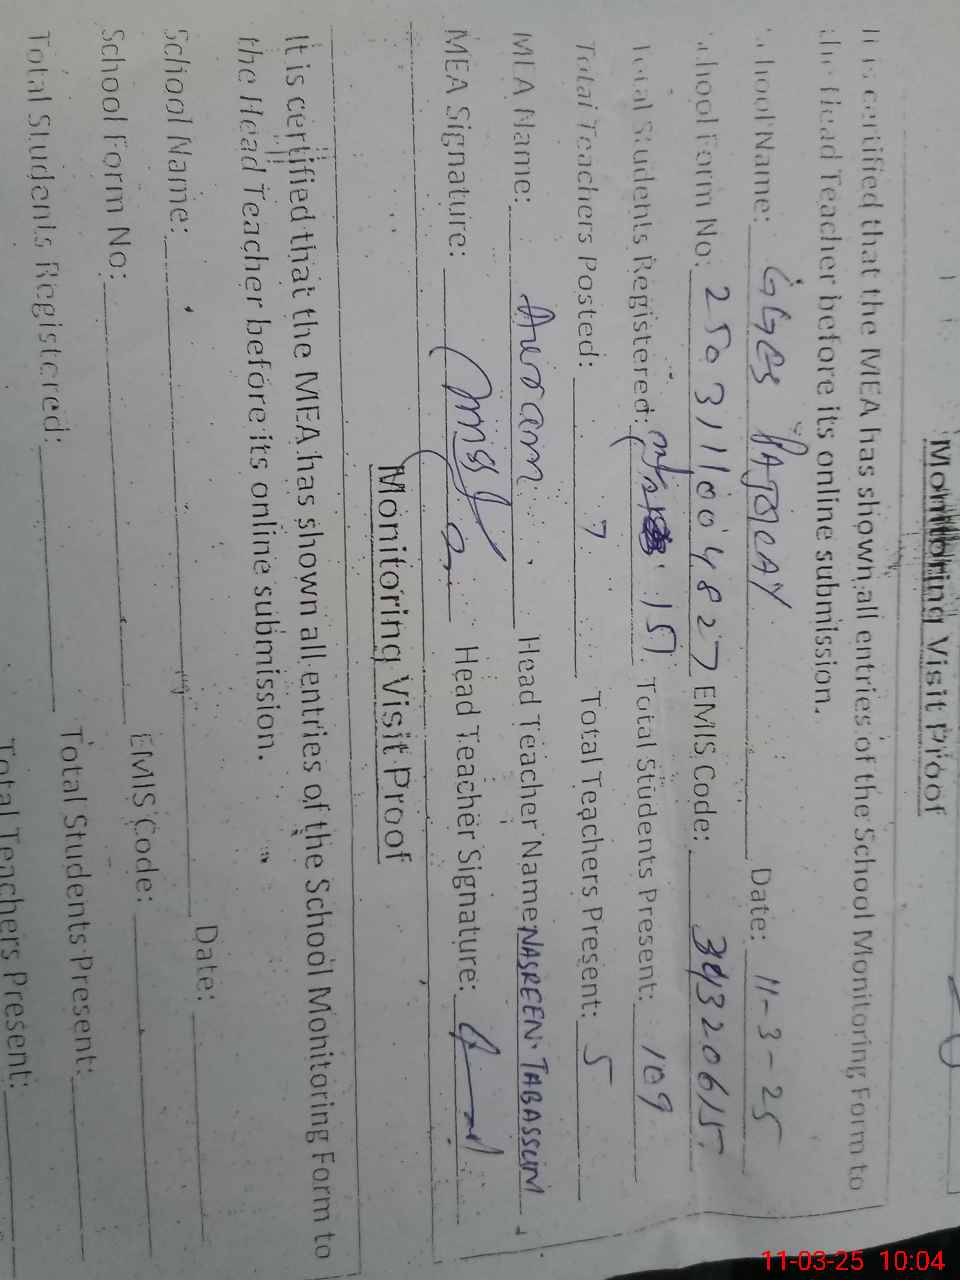 Monitoring Visit Proof
It is certified that the MEA has shown all entries of the School Monitoring Form to
the Head Teacher before its online submission.
School Name: GGES Date: 11-3-25
School Form No: 2503111004827 EMIS Code: 39320615
Total Students Registered: 151 Total Students Present: 109
Total Teachers Posted: 7 Total Teachers Present: 5
MEA Name: Head Teacher Name NASREEN TABASSUM
MEA Signature: Head Teacher Signature:
Monitoring Visit Proof
It is certified that the MEA has shown all entries of the School Monitoring Form to
the Head Teacher before its online submission.
School Name: Date:
School Form No: EMIS Code:
Total Students Registered: Total Students Present:
Total Teachers Present:
11-03-25 10:04